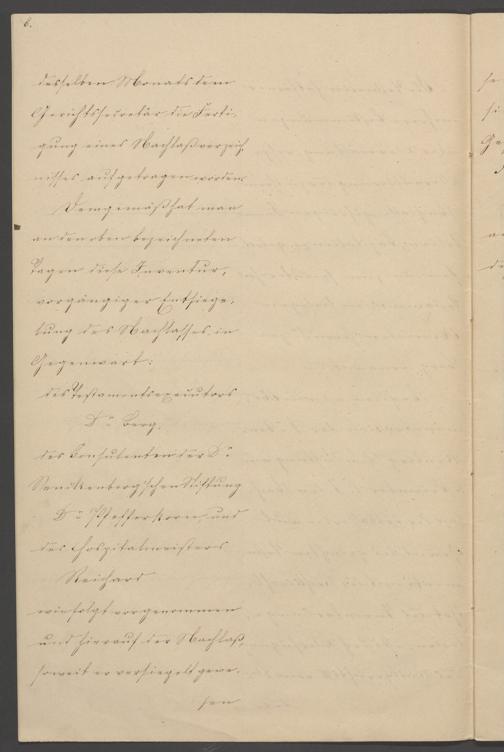 6.
desselben Monats dem
Gerichtssecretär die Ferti-
gung eines Nachlaßverzeich-
nisses aufgetragen worden.
Demgemäß hat man
an den oben bezeichneten
Tagen diese Inventur,
vorgängiger Entsiege-
lung des Nachlasses in
Gegenwart:
des Testamentsexecutors
Dr Berg,
des Consulenten der Dr
Senckenberg'schen Stiftung
Dr Pfefferkorn, und
des Hospitalmeisters
Reichard
wie folgt vorgenommen
und hierauf der Nachlaß,
soweit er versiegelt gewe-
sen